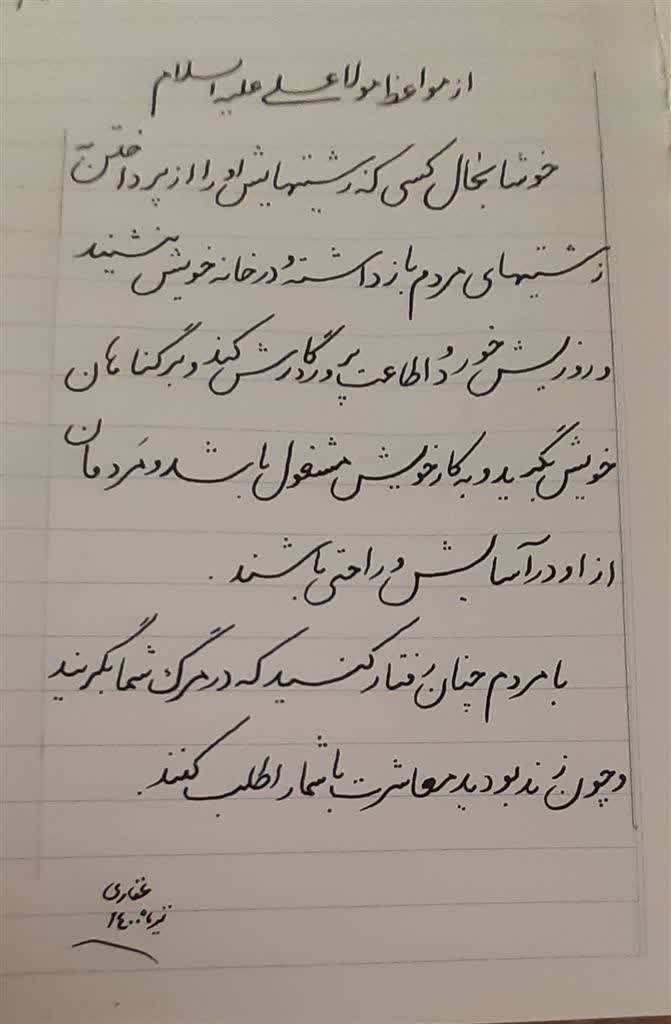 از مواعظ مولا علی علیه السلام
خوشا بحال کسی که زشتیهایش او را از پرداختن
زشتیهای مردم باز داشته و در خانه خویش بنشیند
و روزیش خورد و اطاعت پروردگارش کند و بر گناهان
خویش بگرید و به کار خویش مشغول باشد و مردمان
از او در آسایش و راحتی باشند.
با مردم چنان رفتار کنسید که در مرگ شما بگریند
و چون زنده بودید معاشرت با شما را طلب کنند.
غفاری
تیرماه ۱۴۰۰